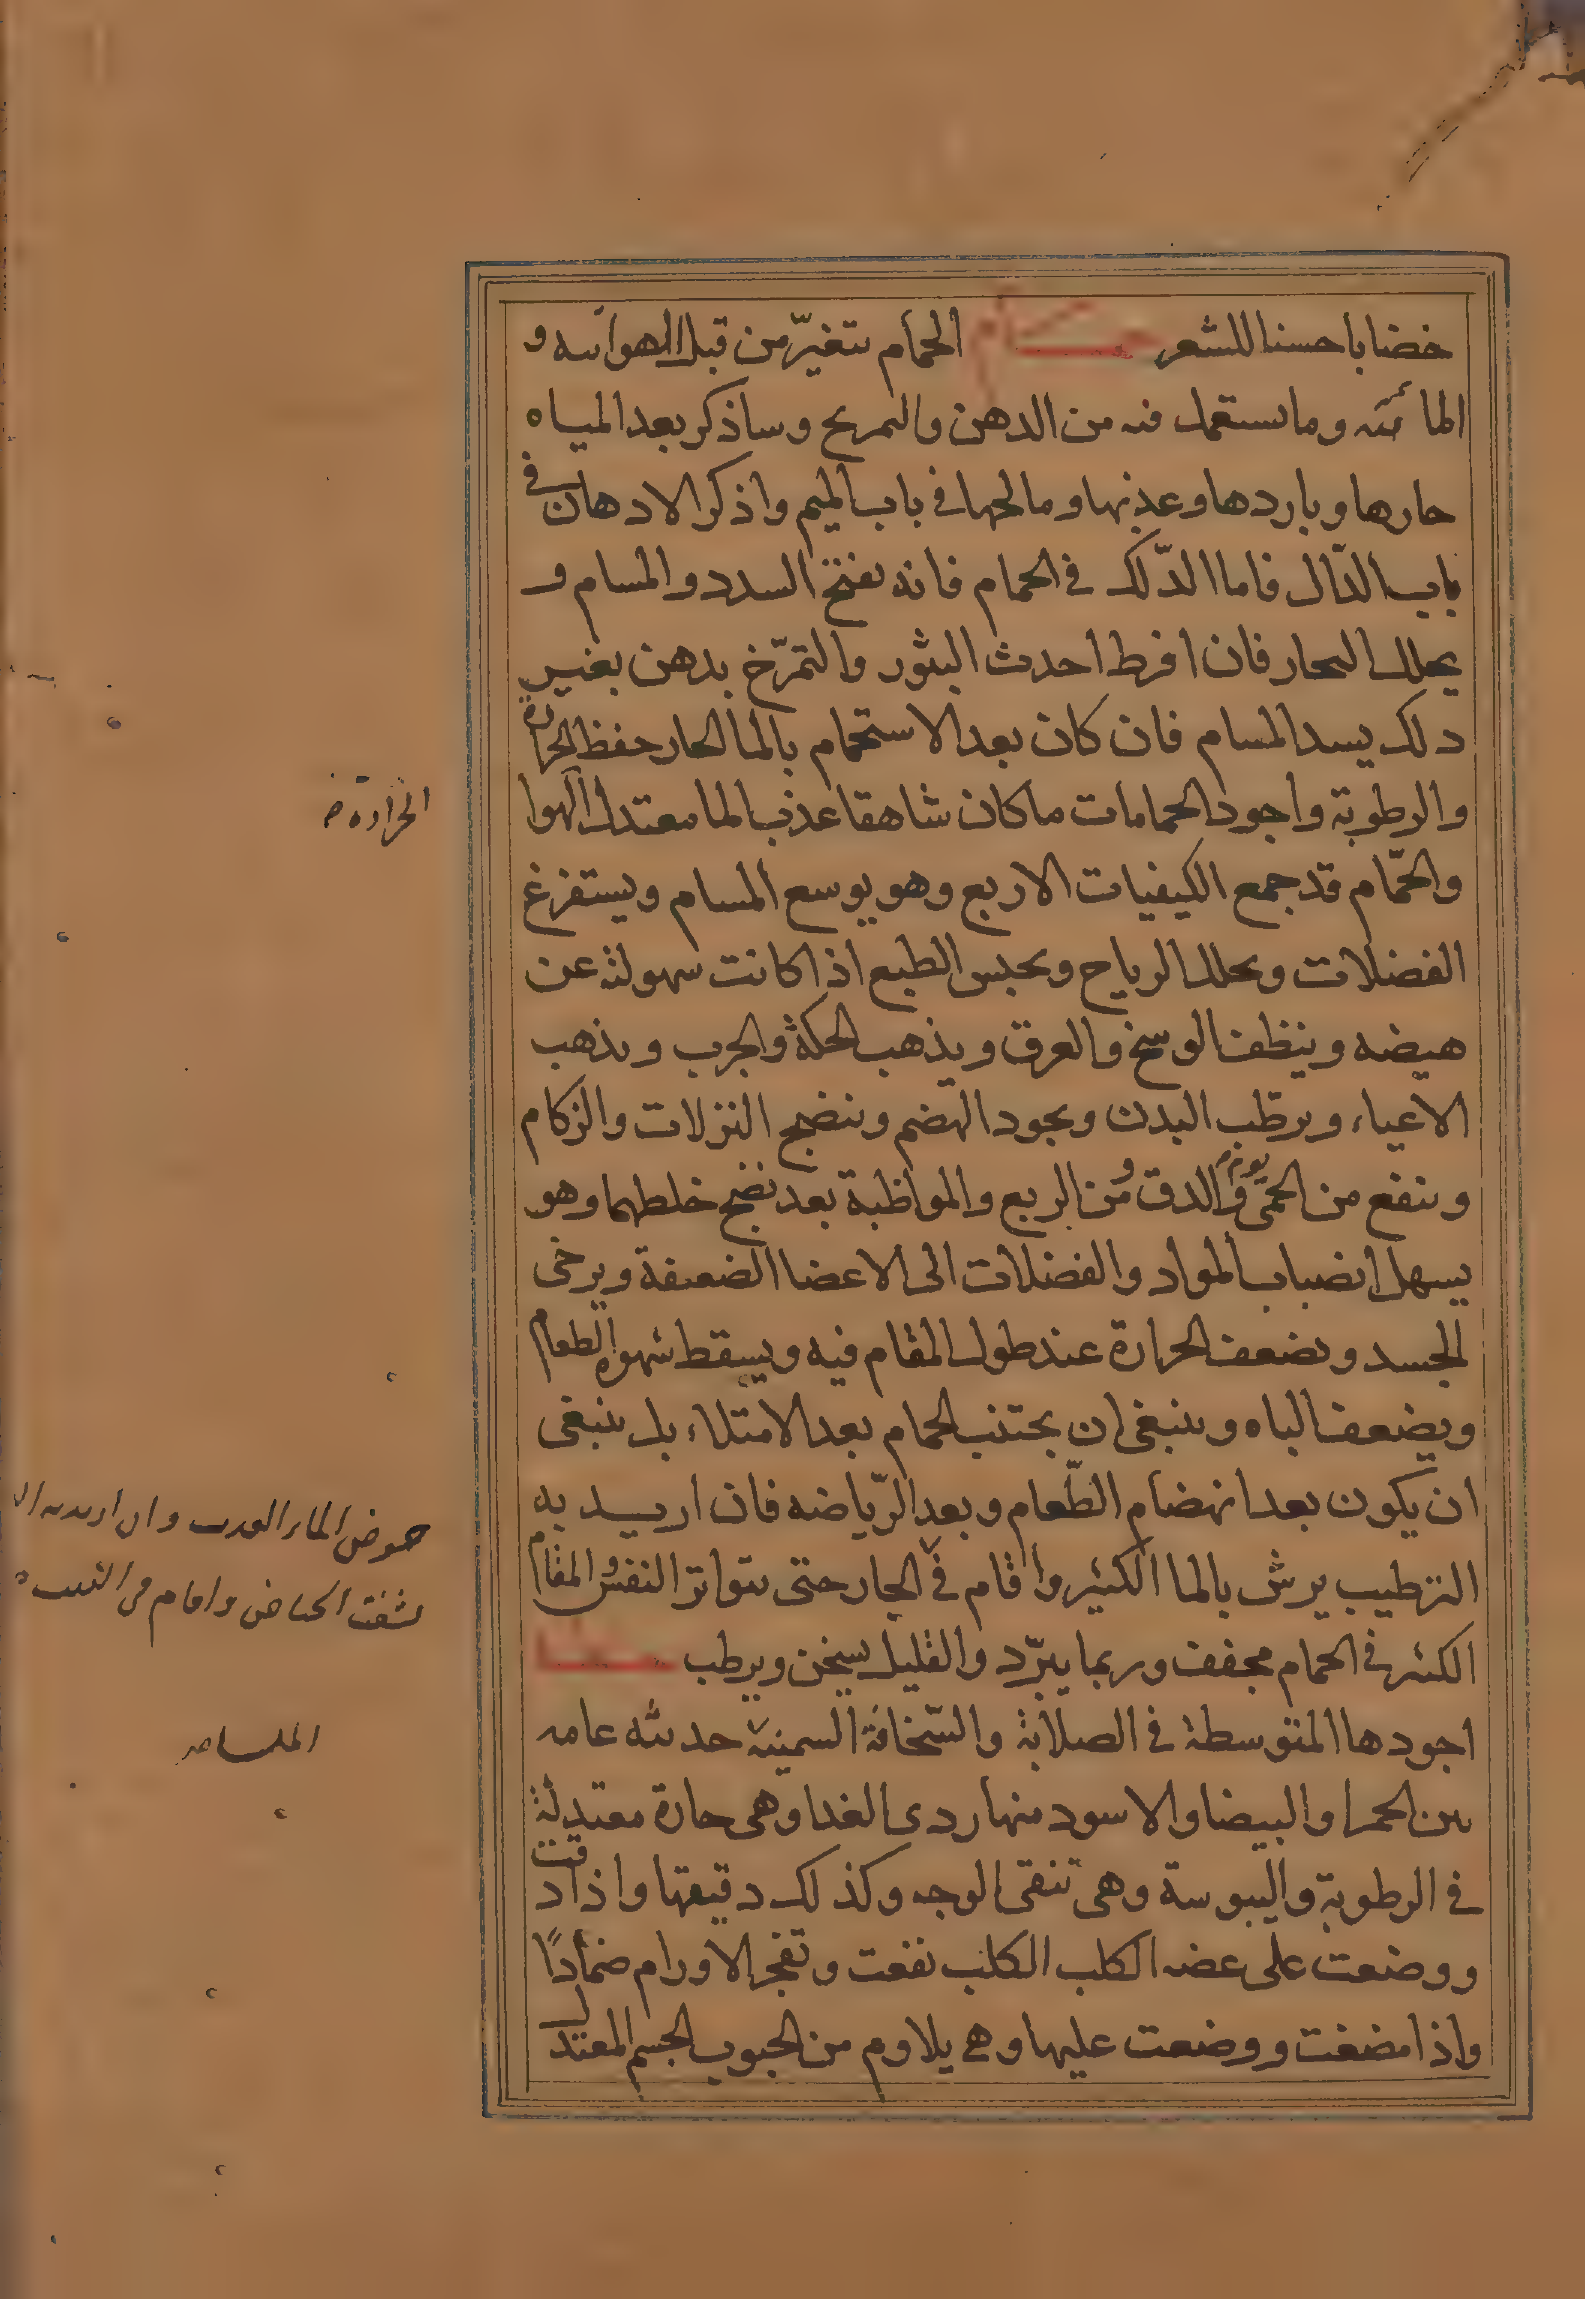 خضابا حسنا للشعر حمام الحمام يتغيّر من قبل الهوائيه و
المائيه وما يستعمل فيه من الدهن والتمريخ وساذكر بعد المياه
حارها وباردها وعذبها ومالحها في باب الميم واذكر الادهان في
باب الدّال فاما الدّلك في الحمام فانه يفتح السدد والمسام و
يحلل البخار فان افرط احدث البثور والتمرّخ بدهن بغير
دلك يسد المسام فان كان بعد الاستحمام بالما الحار حفظ الحرارة
والرطوبة واجود الحمامات ما كان شاهقا عذب الما معتدل الهوا
والحمّام قد جمع الكيفيات الاربع وهو يوسع المسام ويستفرغ
الفضلات ويحلل الرياح ويحبس الطبع اذا كانت سهولته عن
هيضه وينظف الوسخ والعرق ويذهب الحكة والجرب ويذهب
الاعياء ويرطّب البدن ويجود الهضم وينضج النزلات والزكام
وينفع من الحمّى يوم والدق ومن الربع والمواظبة بعد نضج خلطهما وهو
يسهل انصباب المواد والفضلات الى الاعضا الضعيفة ويرخى
الجسد ويضعف الحرارة عند طول المقام فيه ويسقط شهوة الطعام
ويضعف الباه وينبغى ان يجتنب الحمام بعد الامتلاء بل ينبغى
ان يكون بعد انهضام الطّعام وبعد الرّياضه فان اريد به
الترطيب يرش بالما الكثير واقام في الحار حتى يتواتر النفس والمقام
الكثير في الحمام مجفف وربما يبرّد والقليل يسخن ويرطب حنطة
اجودها المتوسطة في الصلابة والسّخافة السمينة حديثه
بين الحمرا والبيضا والاسود منها ردى الغدا وهى حارة معتدلة
في الرطوبة واليبوسة وهى تنقى الوجه وكذلك دقيقها واذا دقت
ووضعت على عضه الكلب الكلب نفعت وتفجر الاورام ضمادًا
واذا مضغت ووضعت عليها وهي يلاوم من الحبوب الجسم المعتدل
الحرارة
حوض الماء العذب وان اريد به
نشفت الحياض واقام في
الملسا